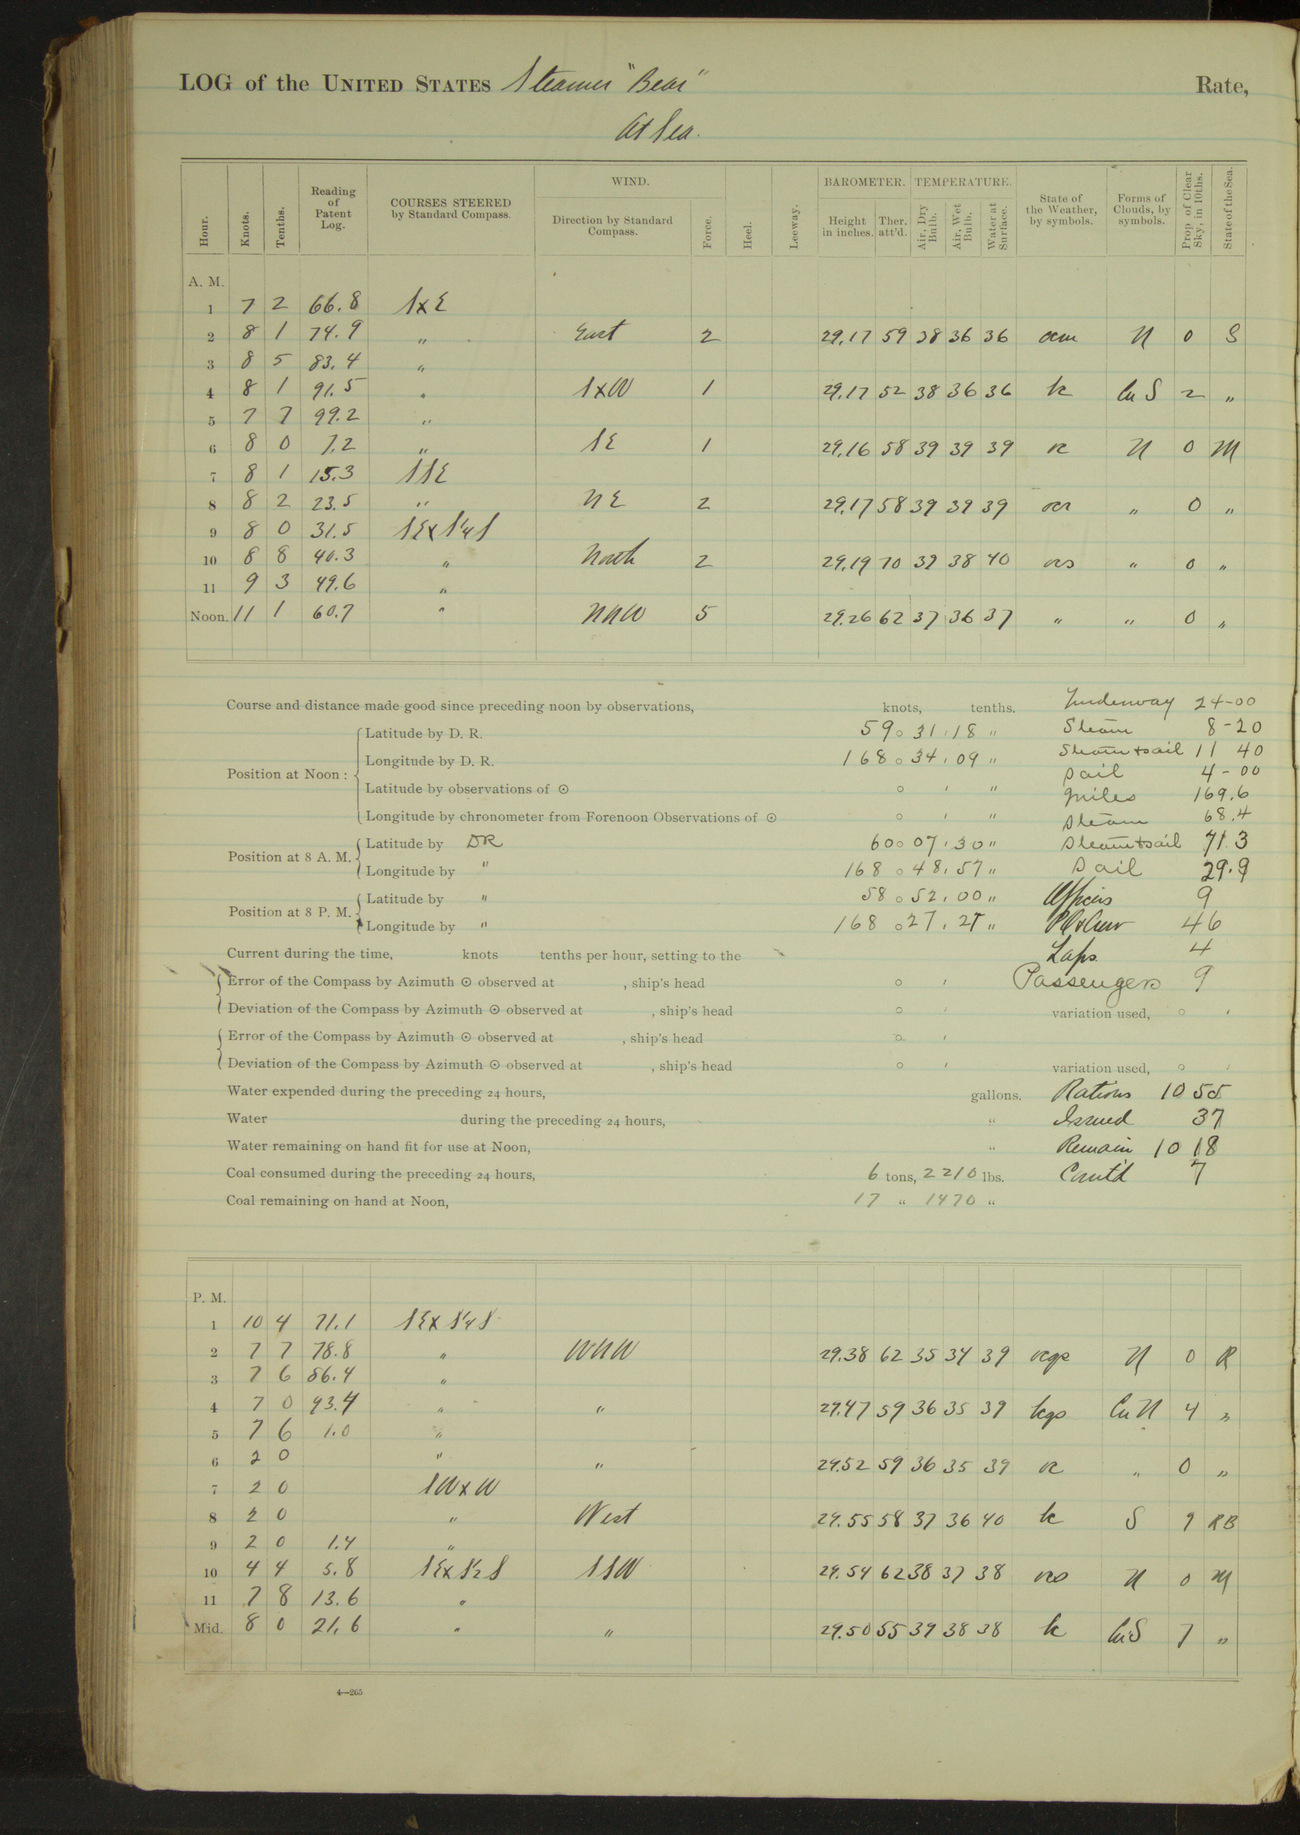 LOG of the UNITED STATES Steamer "Bear" Rate,
At Sea.
Hour. Knots. Tenths. Reading of Patent Log. COURSES STEERED by Standard Compass. WIND. Direction by Standard Compass. Force. Heel. Leeway. BAROMETER. Height in inches. Ther. att'd. TEMPERATURE. Air, Dry Bulb. Air, Wet Bulb. Water at Surface. State of the Weather, by symbols. Forms of Clouds, by symbols. Prop. of Clear Sky, in 10ths. State of the Sea.
A. M.
1 7 2 66.8 SxE
2 8 1 74.9 " East 2 29.17 59 38 36 36 ocm N 0 S
3 8 5 83.4 "
4 8 1 91.5 " SxW 1 29.17 52 38 36 36 bc Cu S 2 "
5 7 7 99.2 "
6 8 0 7.2 " SE 1 29.16 58 39 39 39 oc N 0 M
7 8 1 15.3 SSE
8 8 2 23.5 " NE 2 29.17 58 39 39 39 ocr " 0 "
9 8 0 31.5 SExS¼S
10 8 8 40.3 " North 2 29.19 70 39 38 40 ocs " 0 "
11 9 3 49.6 "
Noon. 11 1 60.7 " NNW 5 29.26 62 37 36 37 " " 0 "
Course and distance made good since preceding noon by observations, knots, tenths. Underway 24-00
Position at Noon: Latitude by D. R. 59 ° 31 ' 18 " Steam 8-20
Longitude by D. R. 168 ° 34 ' 09 " Steam + sail 11 40
Latitude by observations of ⊙ ° ' " Sail 4-00
Miles 169.6
Longitude by chronometer from Forenoon Observations of ⊙ ° ' " Steam 68.4
Position at 8 A. M. Latitude by DR 60 ° 07 ' 30 " Steam + sail 71.3
Longitude by " 168 ° 48 ' 57 " Sail 29.9
Position at 8 P. M. Latitude by " 58 ° 52 ' 00 " Officers 9
Longitude by " 168 ° 27 ' 27 " P.O. + Crew 46
Current during the time, knots tenths per hour, setting to the Laps 4
Error of the Compass by Azimuth ⊙ observed at , ship's head ° ' Passengers 9
Deviation of the Compass by Azimuth ⊙ observed at , ship's head ° ' variation used, ° '
Error of the Compass by Azimuth ⊙ observed at , ship's head ° '
Deviation of the Compass by Azimuth ⊙ observed at , ship's head ° ' variation used, ° '
Water expended during the preceding 24 hours, gallons. Rations 1055
Water during the preceding 24 hours, " Issued 37
Water remaining on hand fit for use at Noon, " Remain 1018
Coal consumed during the preceding 24 hours, 6 tons, 2210 lbs. Com'td 7
Coal remaining on hand at Noon, 17 " 1470 "
P. M.
1 10 4 71.1 SExS¼S
2 7 7 78.8 " WNW 29.38 62 35 34 39 N 0 R
3 7 6 86.4 "
4 7 0 93.4 " " 29.47 59 36 35 39 Cu N 4 "
5 7 6 1.0 "
6 2 0 " " 29.52 59 36 35 39 oc " 0 "
7 2 0 SWxW
8 2 0 " West 29.55 58 37 36 40 bc S 9 RB
9 2 0 1.4 "
10 4 4 5.8 SExS½S SSW 29.54 62 38 37 38 ocs N 0 M
11 7 8 13.6 "
Mid. 8 0 21.6 " " 29.50 55 39 38 38 bc Cu S 7 "
4—265